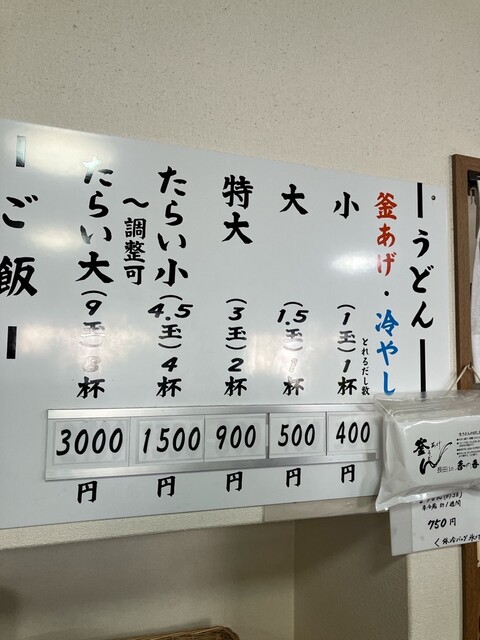 ーうどんー
釜あげ・冷やし
とれるだし数
小(1玉)1杯
400円
大(1.5玉)1杯
500円
特大(3玉)2杯
900円
たらい小(4.5玉)4杯
1500円
〜調整可
たらい大(9玉)8杯
3000円
ーご飯ー
釜あげうどん
750円